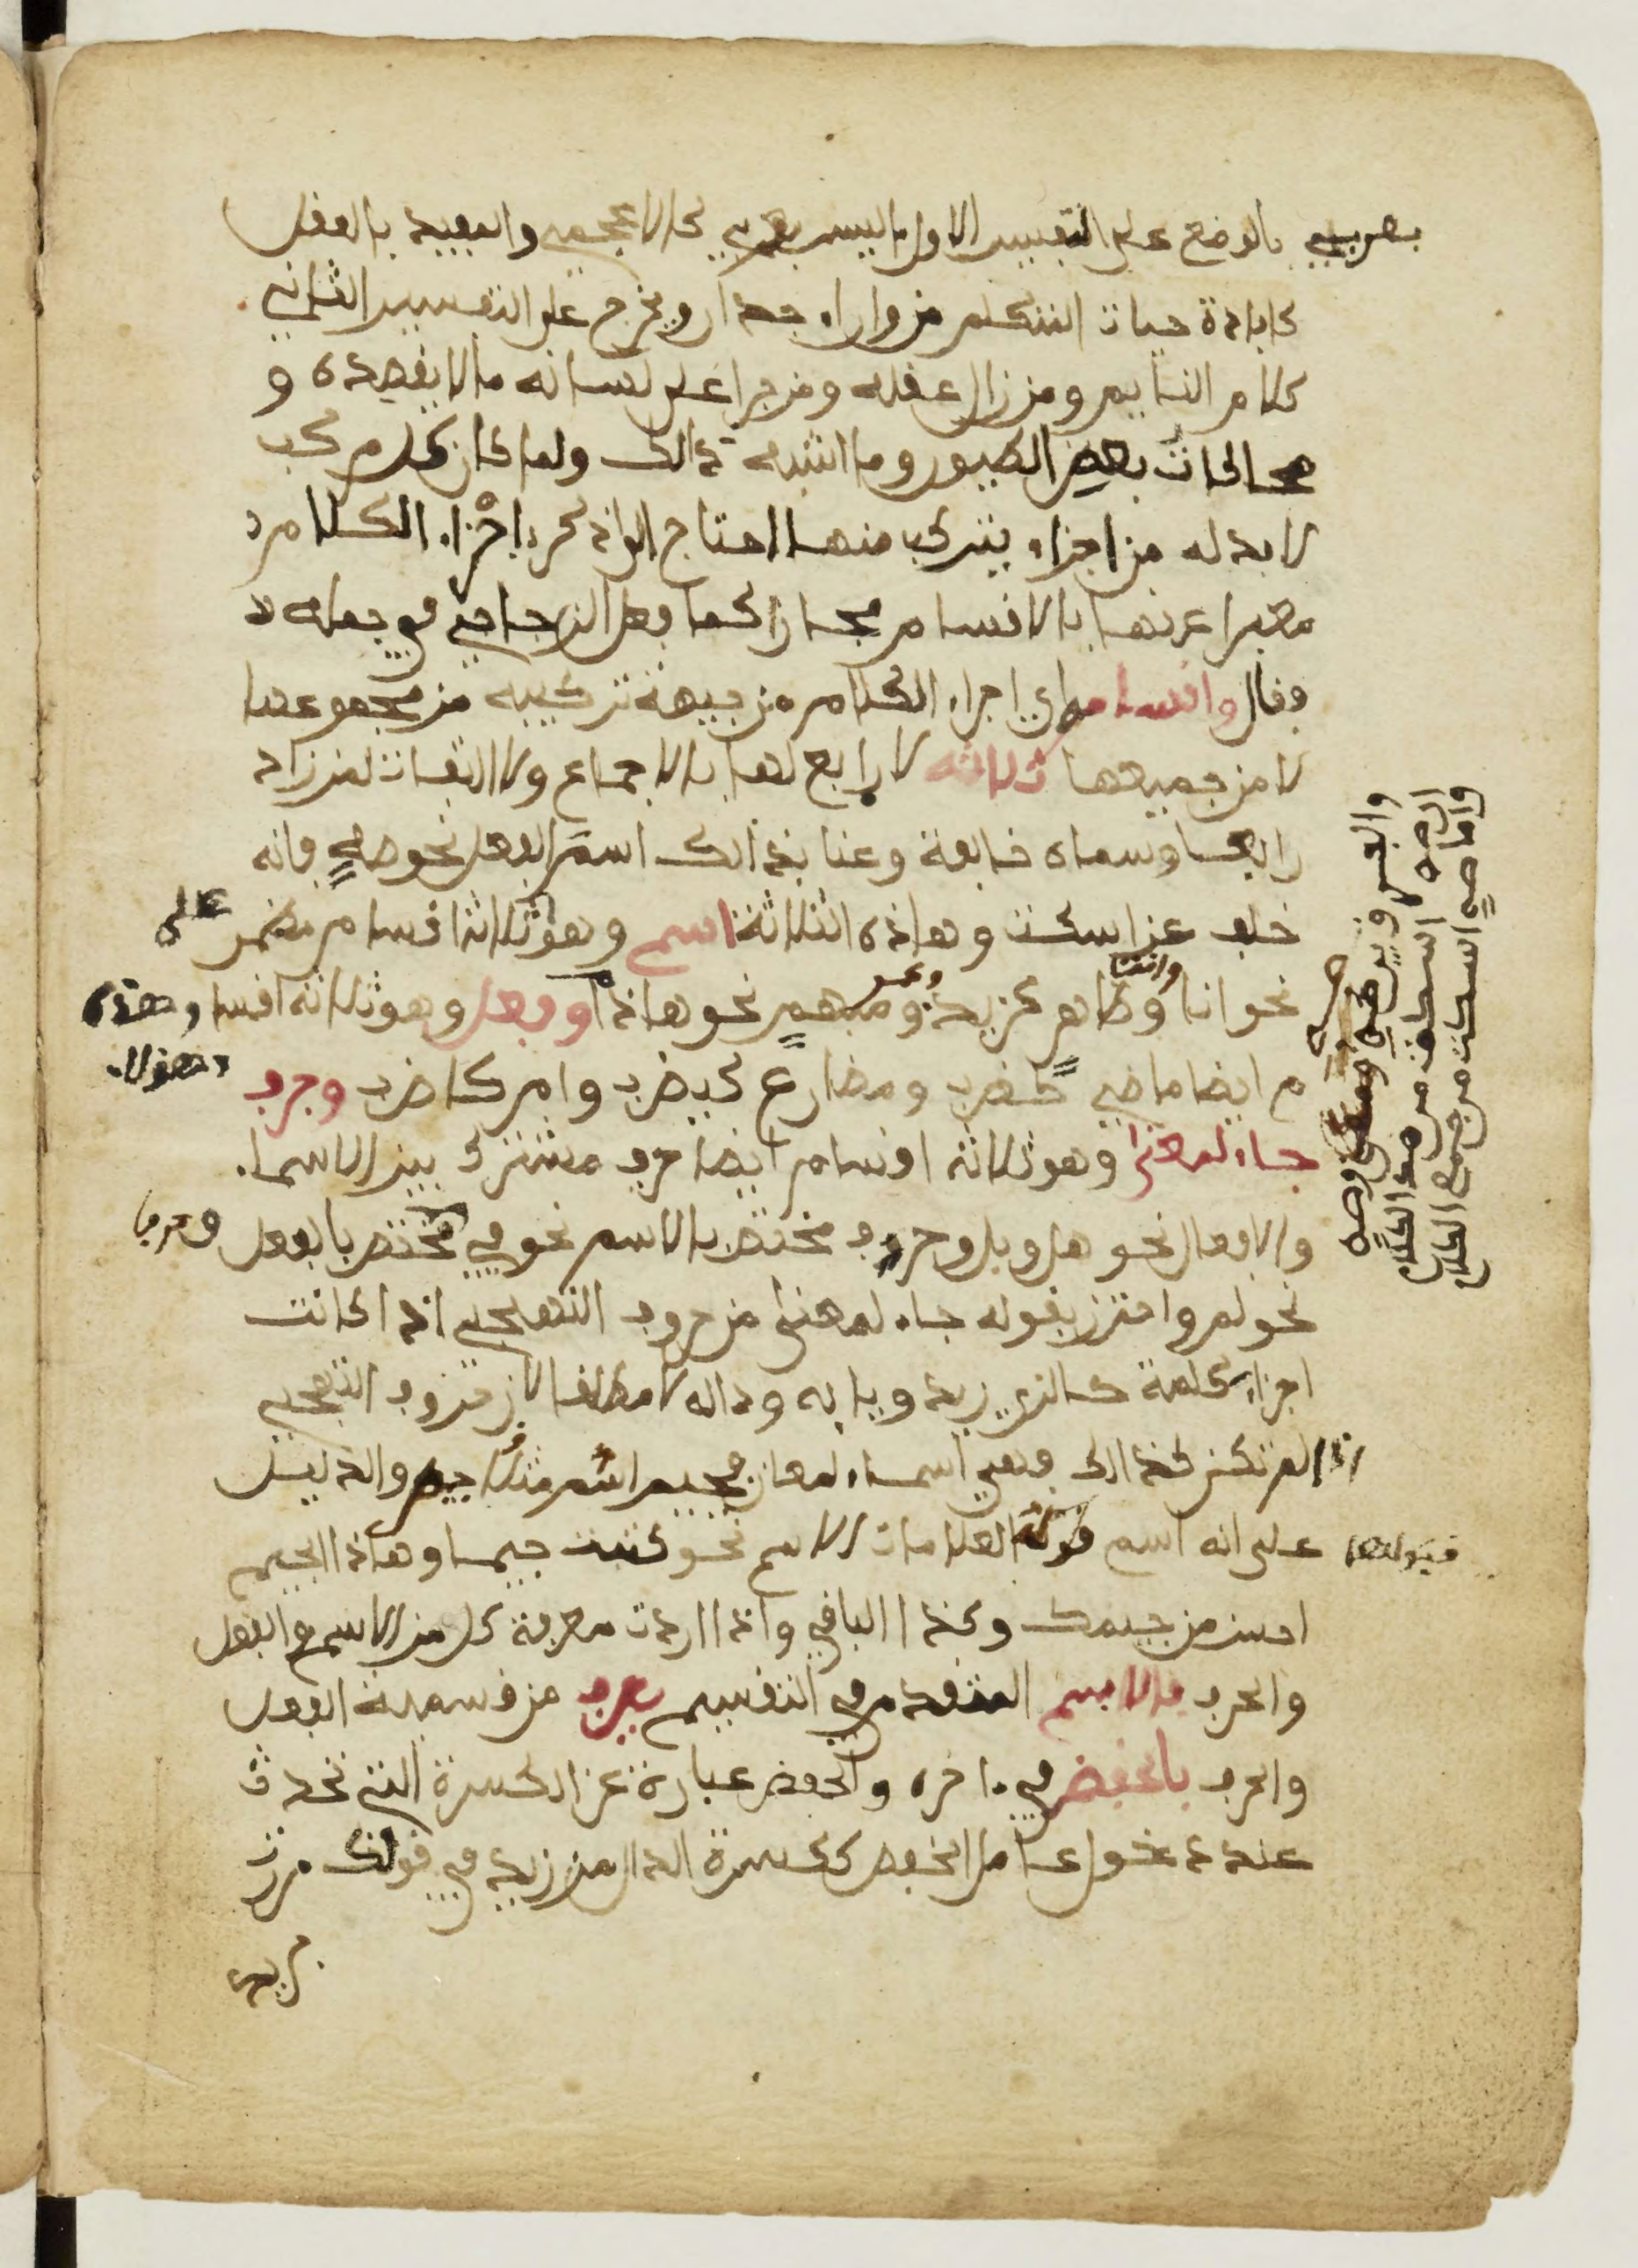 بعربي بالوضع على التفسير الاول ما ليس بعربي كالاعجمي والمفيد بالعقل
كافادة حيات المتكلم من وراء جدار ويخرج على التفسير الثاني
كلام النايم ومن زال عقله ومن جرا على لسانه ما لا يقصده و
محاكات بعض الطيور وما اشبه ذالك ولما كان كل مركب
لا بد له من اجزاء يتركب منها احتاج الى ذكر اجزاء الكلام
معبرا عنها بالاقسام مجازا كما فعل الزجاجي في جمله
وقال واقسامه اي اجزاء الكلام من جيهة تركيبه من مجموعها
لا من جميعها ثلاثة لا رابع لها بالاجماع ولا التفات لمن زاد
رابعا وسماه خالفة وعنا بذالك اسم الفعل نحو صه فانه
خلف عن اسكت وهاذه الثلاثة اسم وهو ثلاثة اقسام مضمر
نحو انا وانت وظاهر كزيد وعمر ومبهم نحو هاذا وفعل وهو ثلاثة اقسا
م ايضا ماضي كضرب ومضارع كيضرب وامر كاضرب وحرف
جاء لمعنى وهو ثلاثة اقسام ايضا حرف مشترك بين الاسماء
والافعال نحو هل وبل وحرف مختص بالاسم نحو في مختص بالفعل وحرف
نحو لم واحترز بقوله جاء لمعنى من حروف التهجي اذا كانت
اجزاء كلمة كالزي زيد ويايه وداله لا مطلقا لان حروف التهجي
اذا لم تكن كذالك فهي اسماء لمعان فجيم اسم مثلا جه والدليل
على انه اسم قبولها العلامات الاسم نحو كتبت جيما وهاذا الجيم
احسن من جيمك وكذا الباقي واذا اردت معرفة كل من الاسم والفعل
والحرف فالاسم المتقدم في التقسيم يعرف من قسيميه الفعل
والحرف بالخفض في ءاخره والخفض عبارة عن الكسرة التي تحدث
عند دخول عامل الخفض ككسرة الدال من زيد في قولك مررت
بزيد
على
وهذه
وهؤلاء